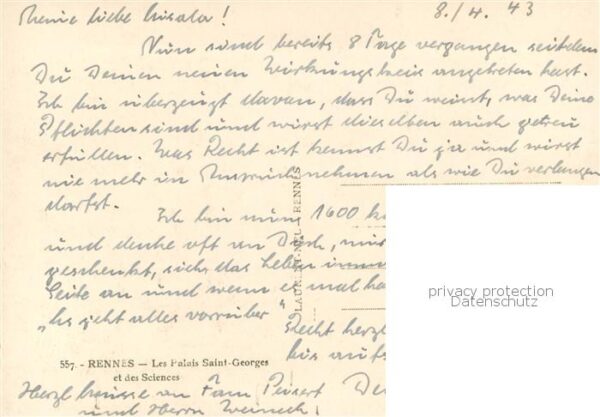 Meine liebe Gisela! 8./4. 43
Nun sind bereits 8 Tage vergangen seitdem
Du Deinen neuen Wirkungskreis angetreten hast.
Ich bin überzeugt davon, dass Du weist, was Deine
Pflichten sind und wirst dieselben auch getreu
erfüllen. Was Recht ist kennst Du ja und wirst
nie mehr in Anspruch nehmen als wie Du verlangen
darfst.
Ich bin nun 1600 k
und denke oft an Dich,
geschenkt, sich das Leben
Seite an und wenn es mal
"Es geht alles vorrüber"
Recht herzl
bis auf
LAURENT-NEL - RENNES
privacy protection
Datenschutz
557. - RENNES — Les Palais Saint-Georges
et des Sciences
Herzl Grüsse an Fam
und Herrn